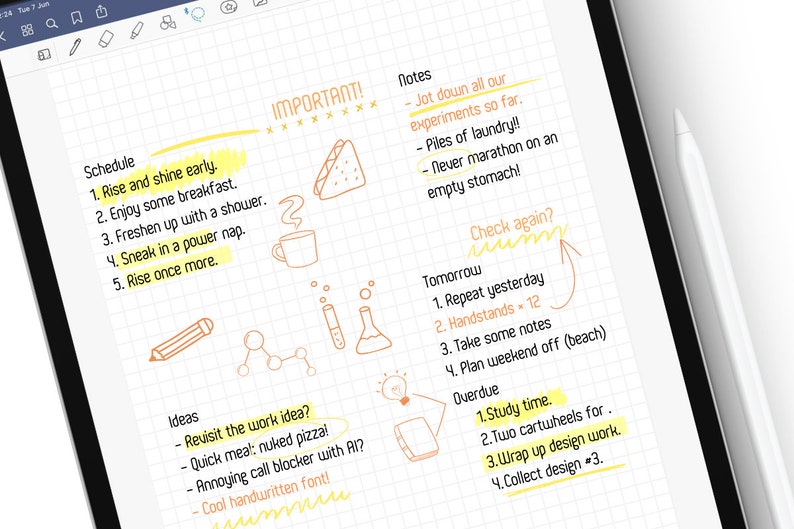 :24 Tue 7 Jun
IMPORTANT!
Schedule
1. Rise and shine early.
2. Enjoy some breakfast.
3. Freshen up with a shower.
4. Sneak in a power nap.
5. Rise once more.
Notes
- Jot down all our
experiments so far.
- Piles of laundry!!
- Never marathon on an
empty stomach!
Check again?
Tomorrow
1. Repeat yesterday
2. Handstands × 12
3. Take some notes
4. Plan weekend off (beach)
Ideas
- Revisit the work idea?
- Quick meal: nuked pizza!
- Annoying call blocker with AI?
- Cool handwritten font!
Overdue
1.Study time.
2.Two cartwheels for .
3.Wrap up design work.
4.Collect design #3.